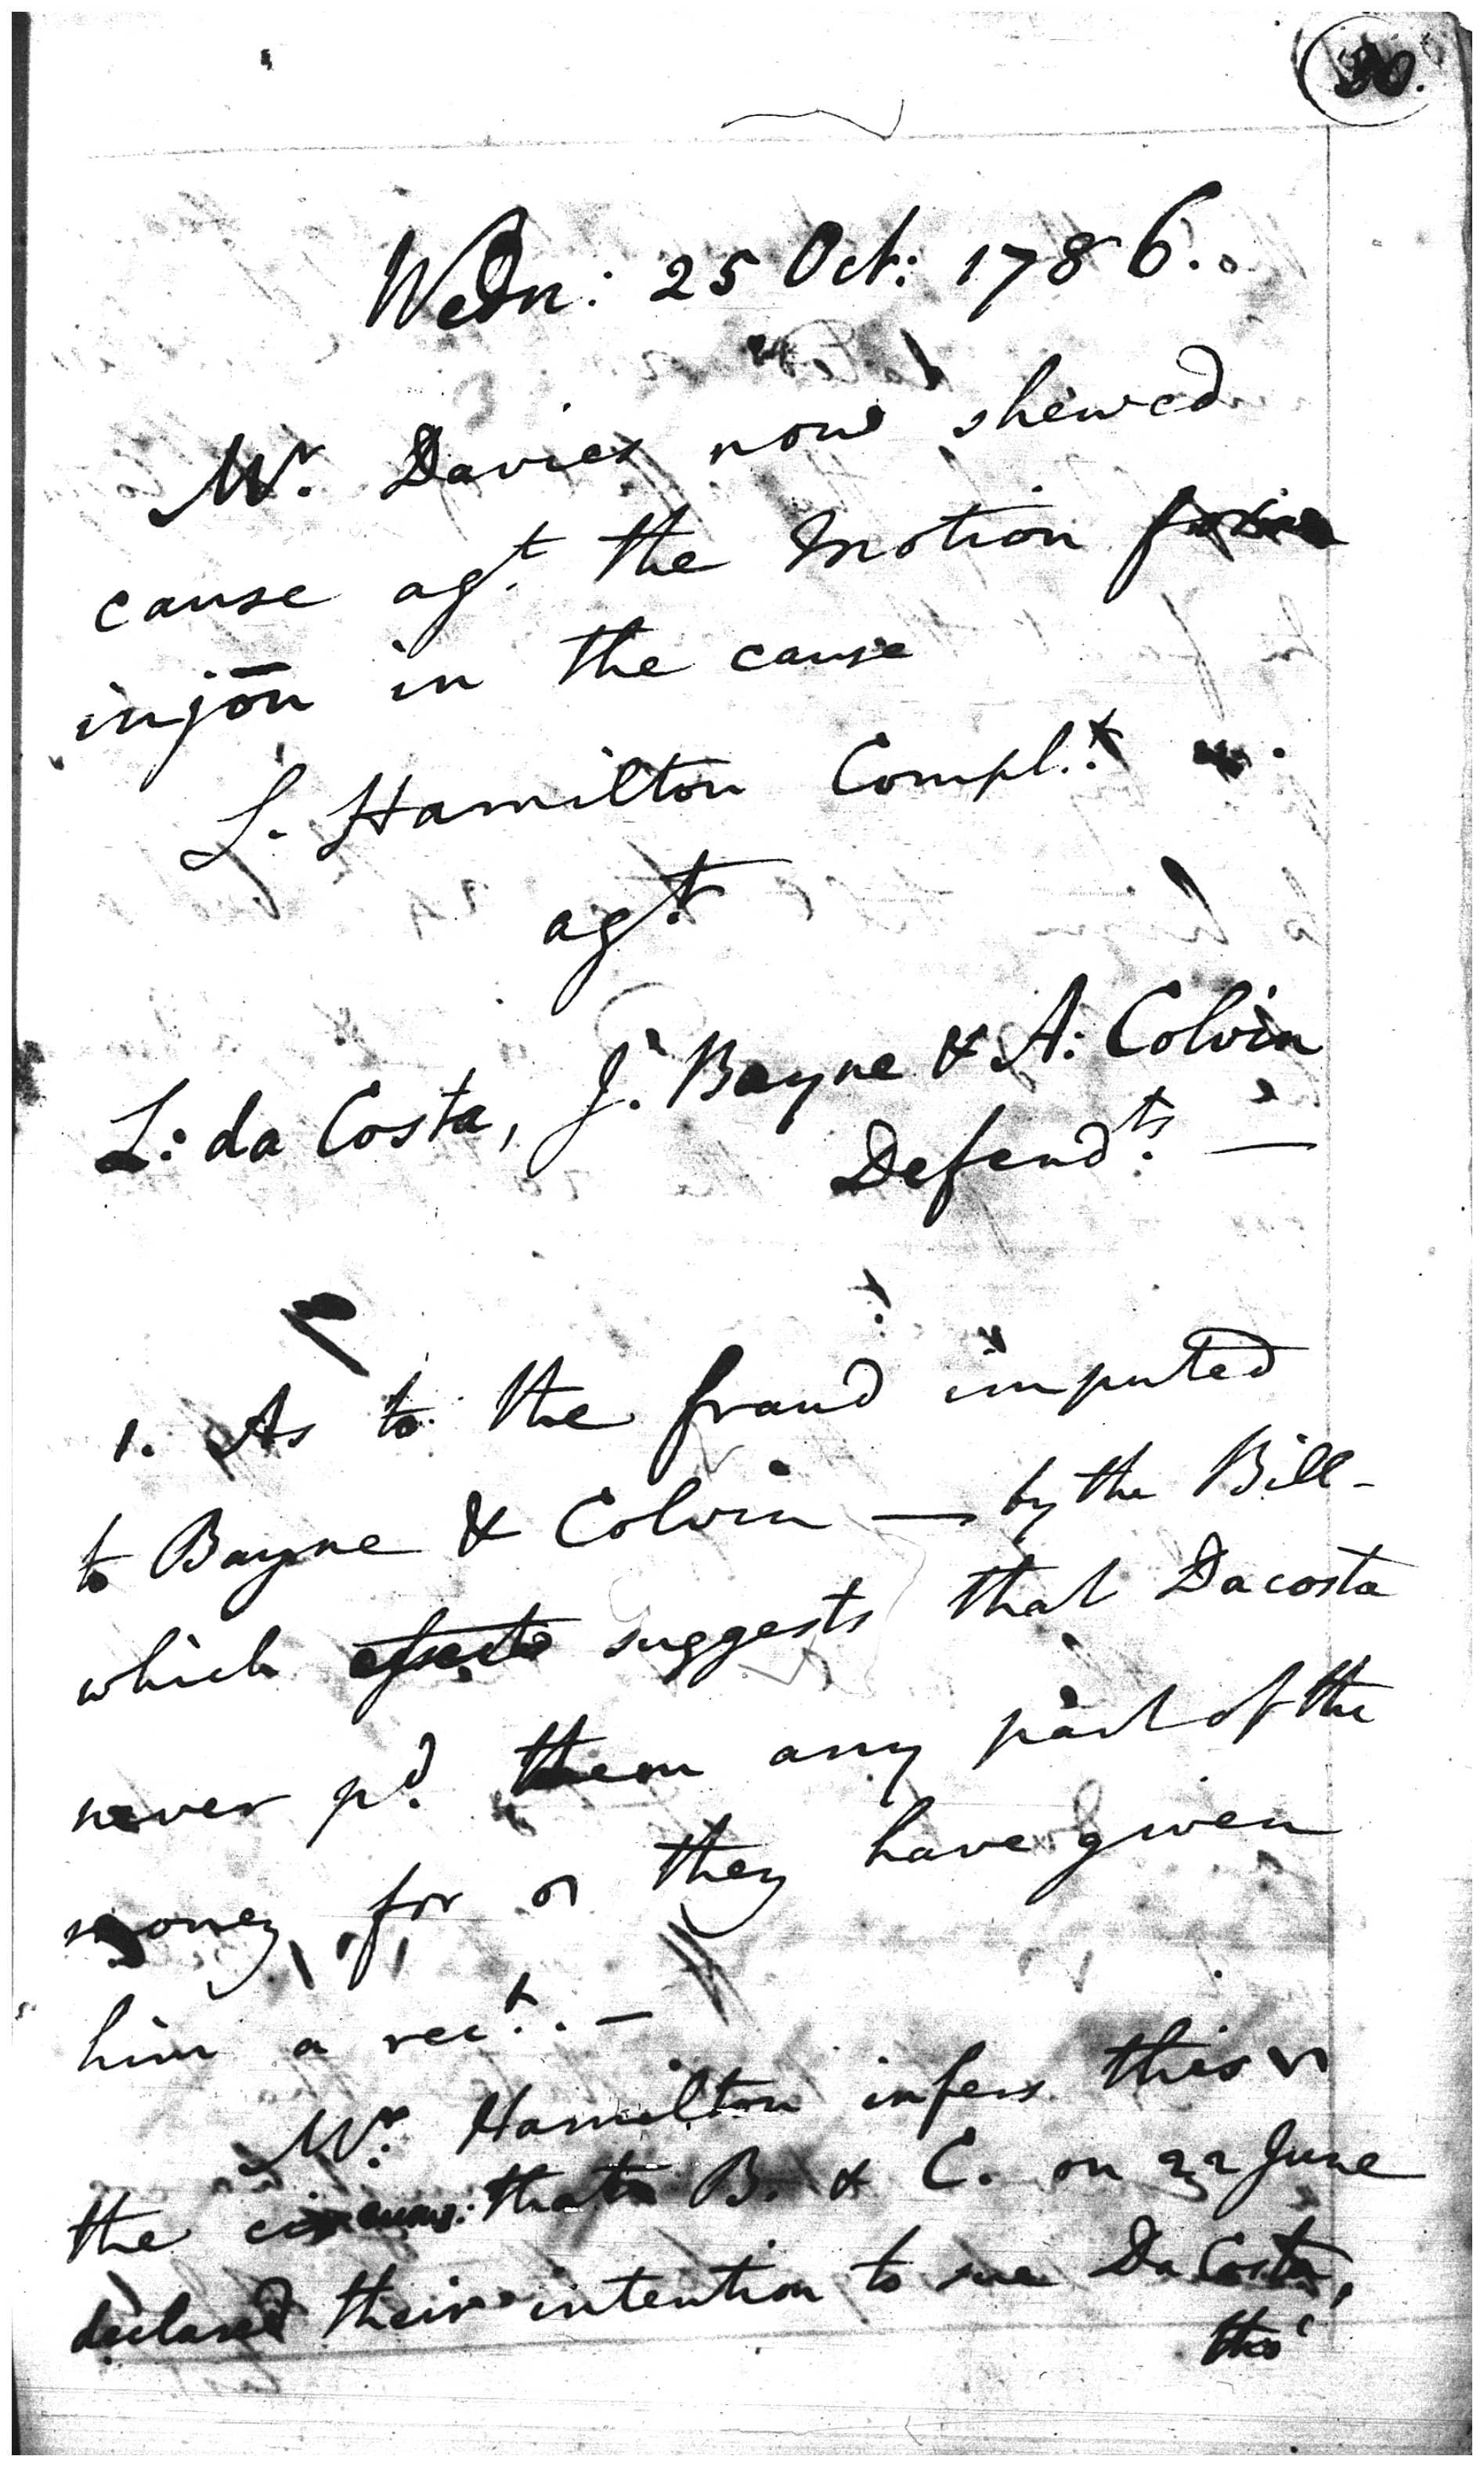 Wedn: 25 Oct: 1786.
Mr. Davies now shewed
cause agt. the motion for
injōn in the cause
L. Hamilton Complt.
agt.
L: da Costa, J. Bayne & A: Colvin
Defendts. —
1. As to the fraud imputed
to Bayne & Colvin — by the Bill -
which suggests that Dacosta
never pd. them any part of the
money for they have given
him a rect. . —
Mr. Hamilton infers this
the circums: that B. & C. on 22 June
declared their intention to sue Da Costa,
tho'